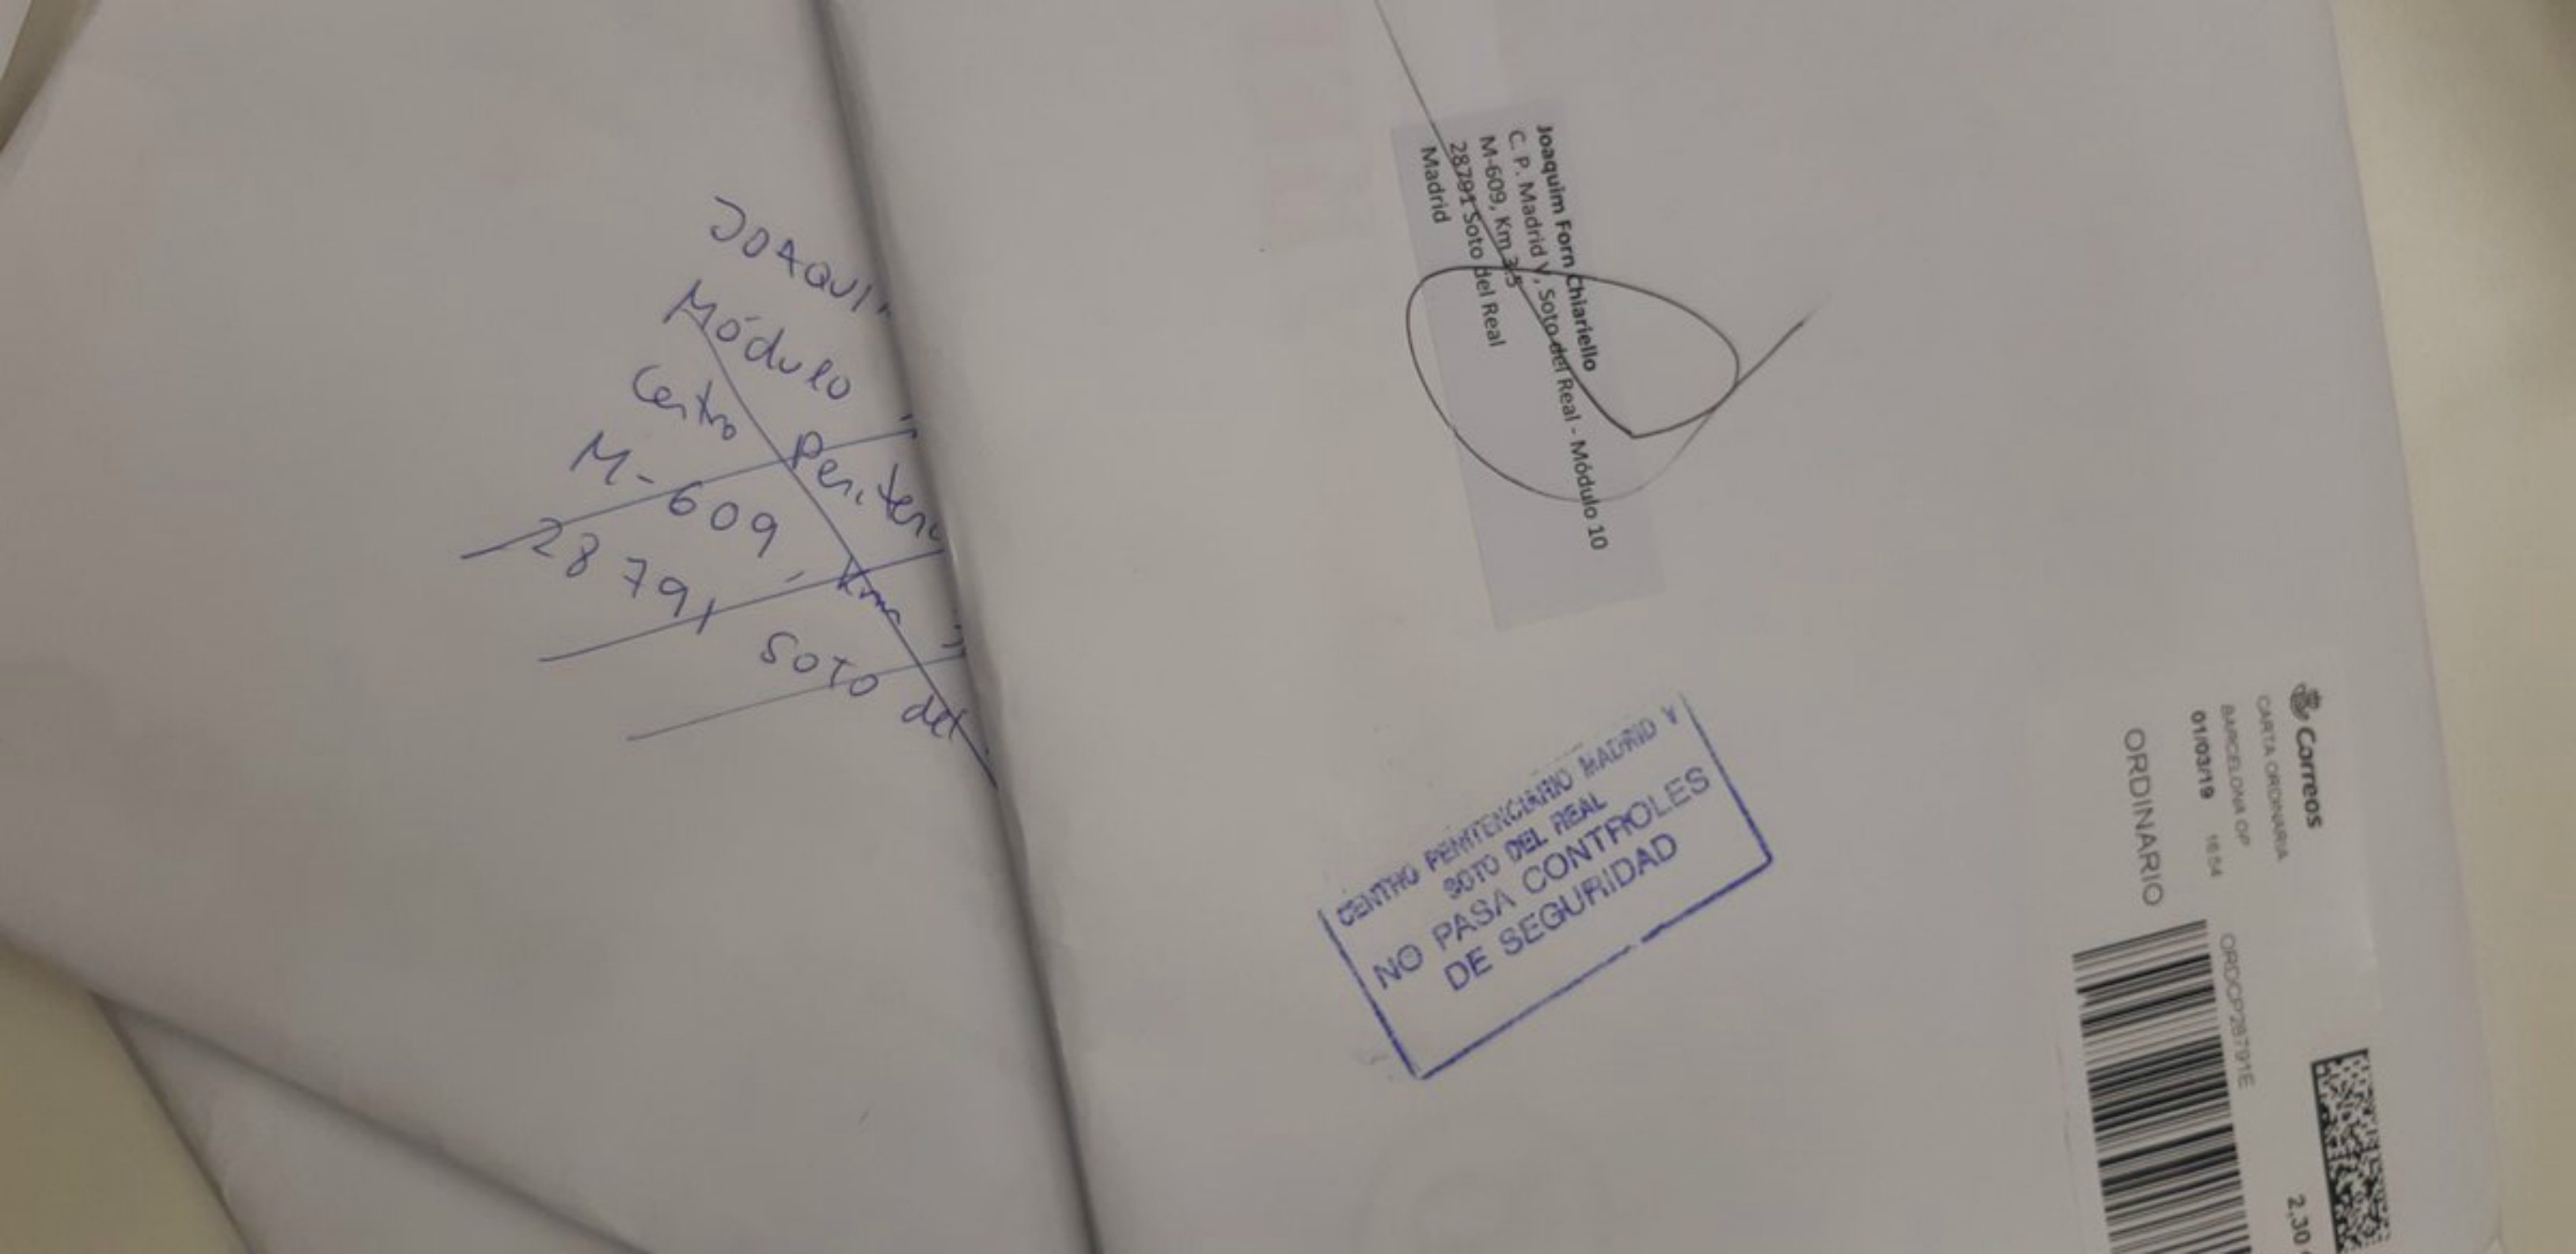 JOAQUI
Módulo
Centro Peniten
M-609, Km
28791 Soto del
Joaquim Forn Chiariello
C. P. Madrid V, Soto del Real - Módulo 10
M-609, Km 3.5
28791 Soto del Real
Madrid
CENTRO PENITENCIARIO MADRID V
SOTO DEL REAL
NO PASA CONTROLES
DE SEGURIDAD
Correos
CARTA ORDINARIA
BARCELONA OP
01/03/19 16:54
ORDCP28791E
ORDINARIO
2,30